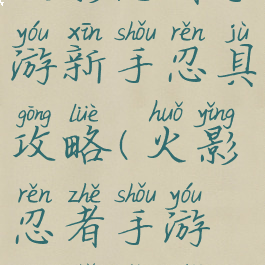 yóu xīn shǒu rěn jù
游新手忍具
gōng lüè huǒ yǐng
攻略(火影
rěn zhě shǒu yóu
忍者手游